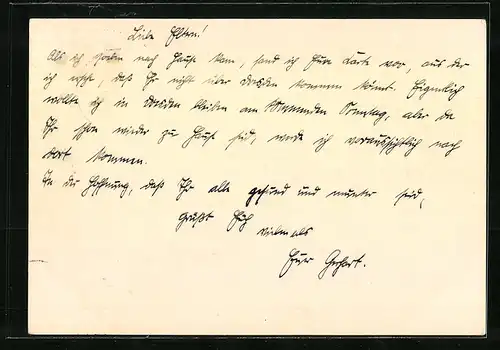 Liebe Eltern!
Als ich soeben nach Hause kam, fand ich Eure Karte vor, aus der
ich ersehe, daß Ihr nicht über Dresden kommen könnt. Eigentlich
wollte ich in Dresden bleiben am kommenden Sonntag, aber da
Ihr schon wieder zu Hause seid, werde ich voraussichtlich nach
dort kommen.
In der Hoffnung, daß Ihr alle gesund und munter seid,
grüßt Euch
vielmals
Euer Gerhart.